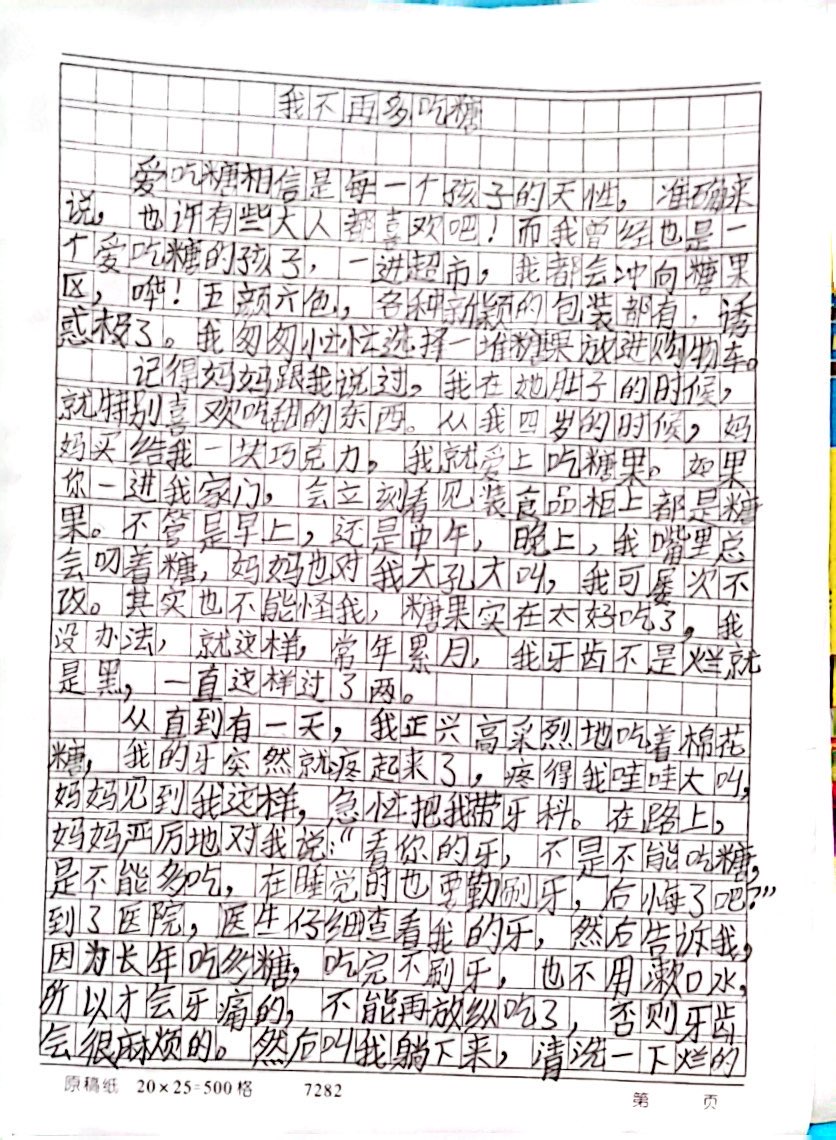 我不再多吃糖
爱吃糖相信是每一个孩子的天性，准确来
说，也许有些大人都喜欢吧！而我曾经也是一
个爱吃糖的孩子，一进超市，我都会冲向糖果
区，哗！五颜六色，各种新颖的包装都有，诱
惑极了。我匆匆忙忙选择一堆糖果放进购物车。
记得妈妈跟我说过，我在她肚子的时候，
就特别喜欢吃甜的东西。从我四岁的时候，妈
妈买给我一块巧克力，我就爱上吃糖果。如果
你一进我家门，会立刻看见装食品柜上都是糖
果。不管是早上，还是中午，晚上，我嘴里总
会叨着糖，妈妈也对我大孔大叫，我可屡次不
改。其实也不能怪我，糖果实在太好吃了，我
没办法，就这样，常年累月，我牙齿不是烂就
是黑，一直这样过了两。
从直到有一天，我正兴高采烈地吃着棉花
糖，我的牙突然就疼起来了，疼得我哇哇大叫，
妈妈见到我这样，急忙把我带牙科。在路上，
妈妈严厉地对我说：“看你的牙，不是不能吃糖，
是不能多吃，在睡觉时也要勤刷牙，后悔了吧？”
到了医院，医生仔细查看我的牙，然后告诉我，
因为长年吃多糖，吃完不刷牙，也不用漱口水，
所以才会牙痛的，不能再放纵吃了，否则牙齿
会很麻烦的。然后叫我躺下来，清洗一下烂的
原稿纸 20×25=500格 7282 第 页